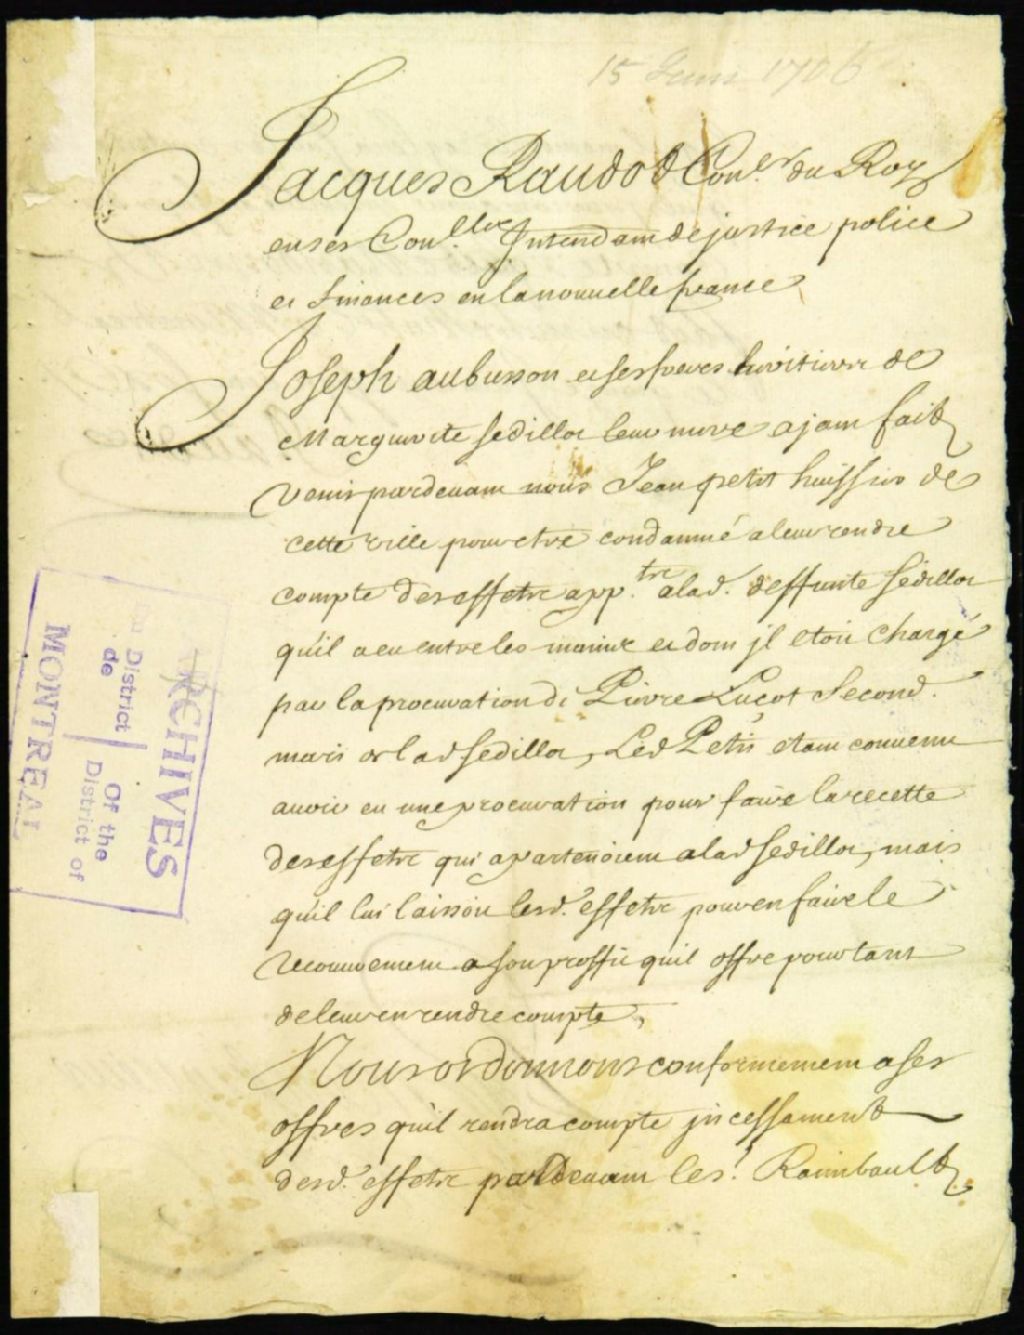 15 Juin 1706
Jacques Raudot Con.er du Roy
en ses Con.lls Intendant de justice police
et finances en la nouuelle france
Joseph aubusson et ses freres heritiers de
Marguerite Sedillot leur mere ajant fait
venir pardeuant nous Jean petit huissier de
cette ville pour etre condamné a leur rendre
compte des effets app.tns a lad. deffunte Sedillot
qu'il a eu entre les mains et dont jl etoit chargé
par la procuration de Pierre Luçot Second.
mari de lad Sedillot, Led Petit etant conuenu
auoir eu une procuration pour faire la recette
des effets qui apartenoient a lad Sedillot, mais
qu'il lui laissoit lesd. effets pour en faire le
recouurement a son proffit qu'il offre pourtant
de leur en rendre compte,
Nous ordonnons conformement a ses
offres qu'il rendra compte jncessament
desd. effets pardeuant le sr. Raimbault
ARCHIVES
Du District | Of the
de | District of
MONTREAL